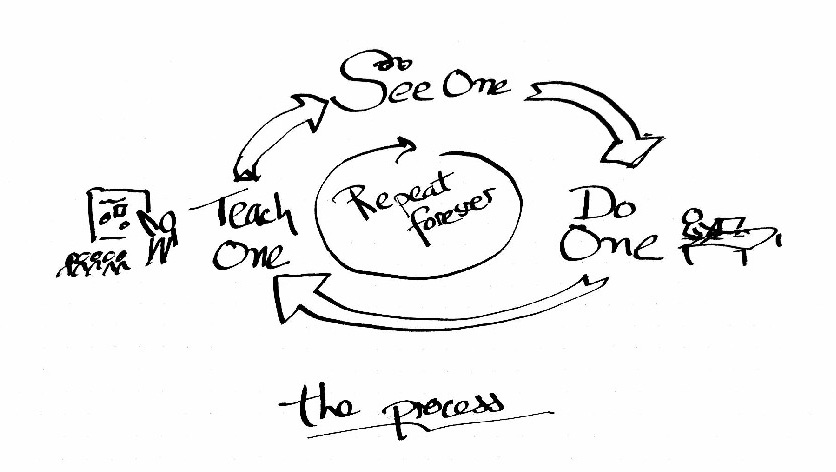 See One
Do
One
Teach
One
Repeat
forever
the process